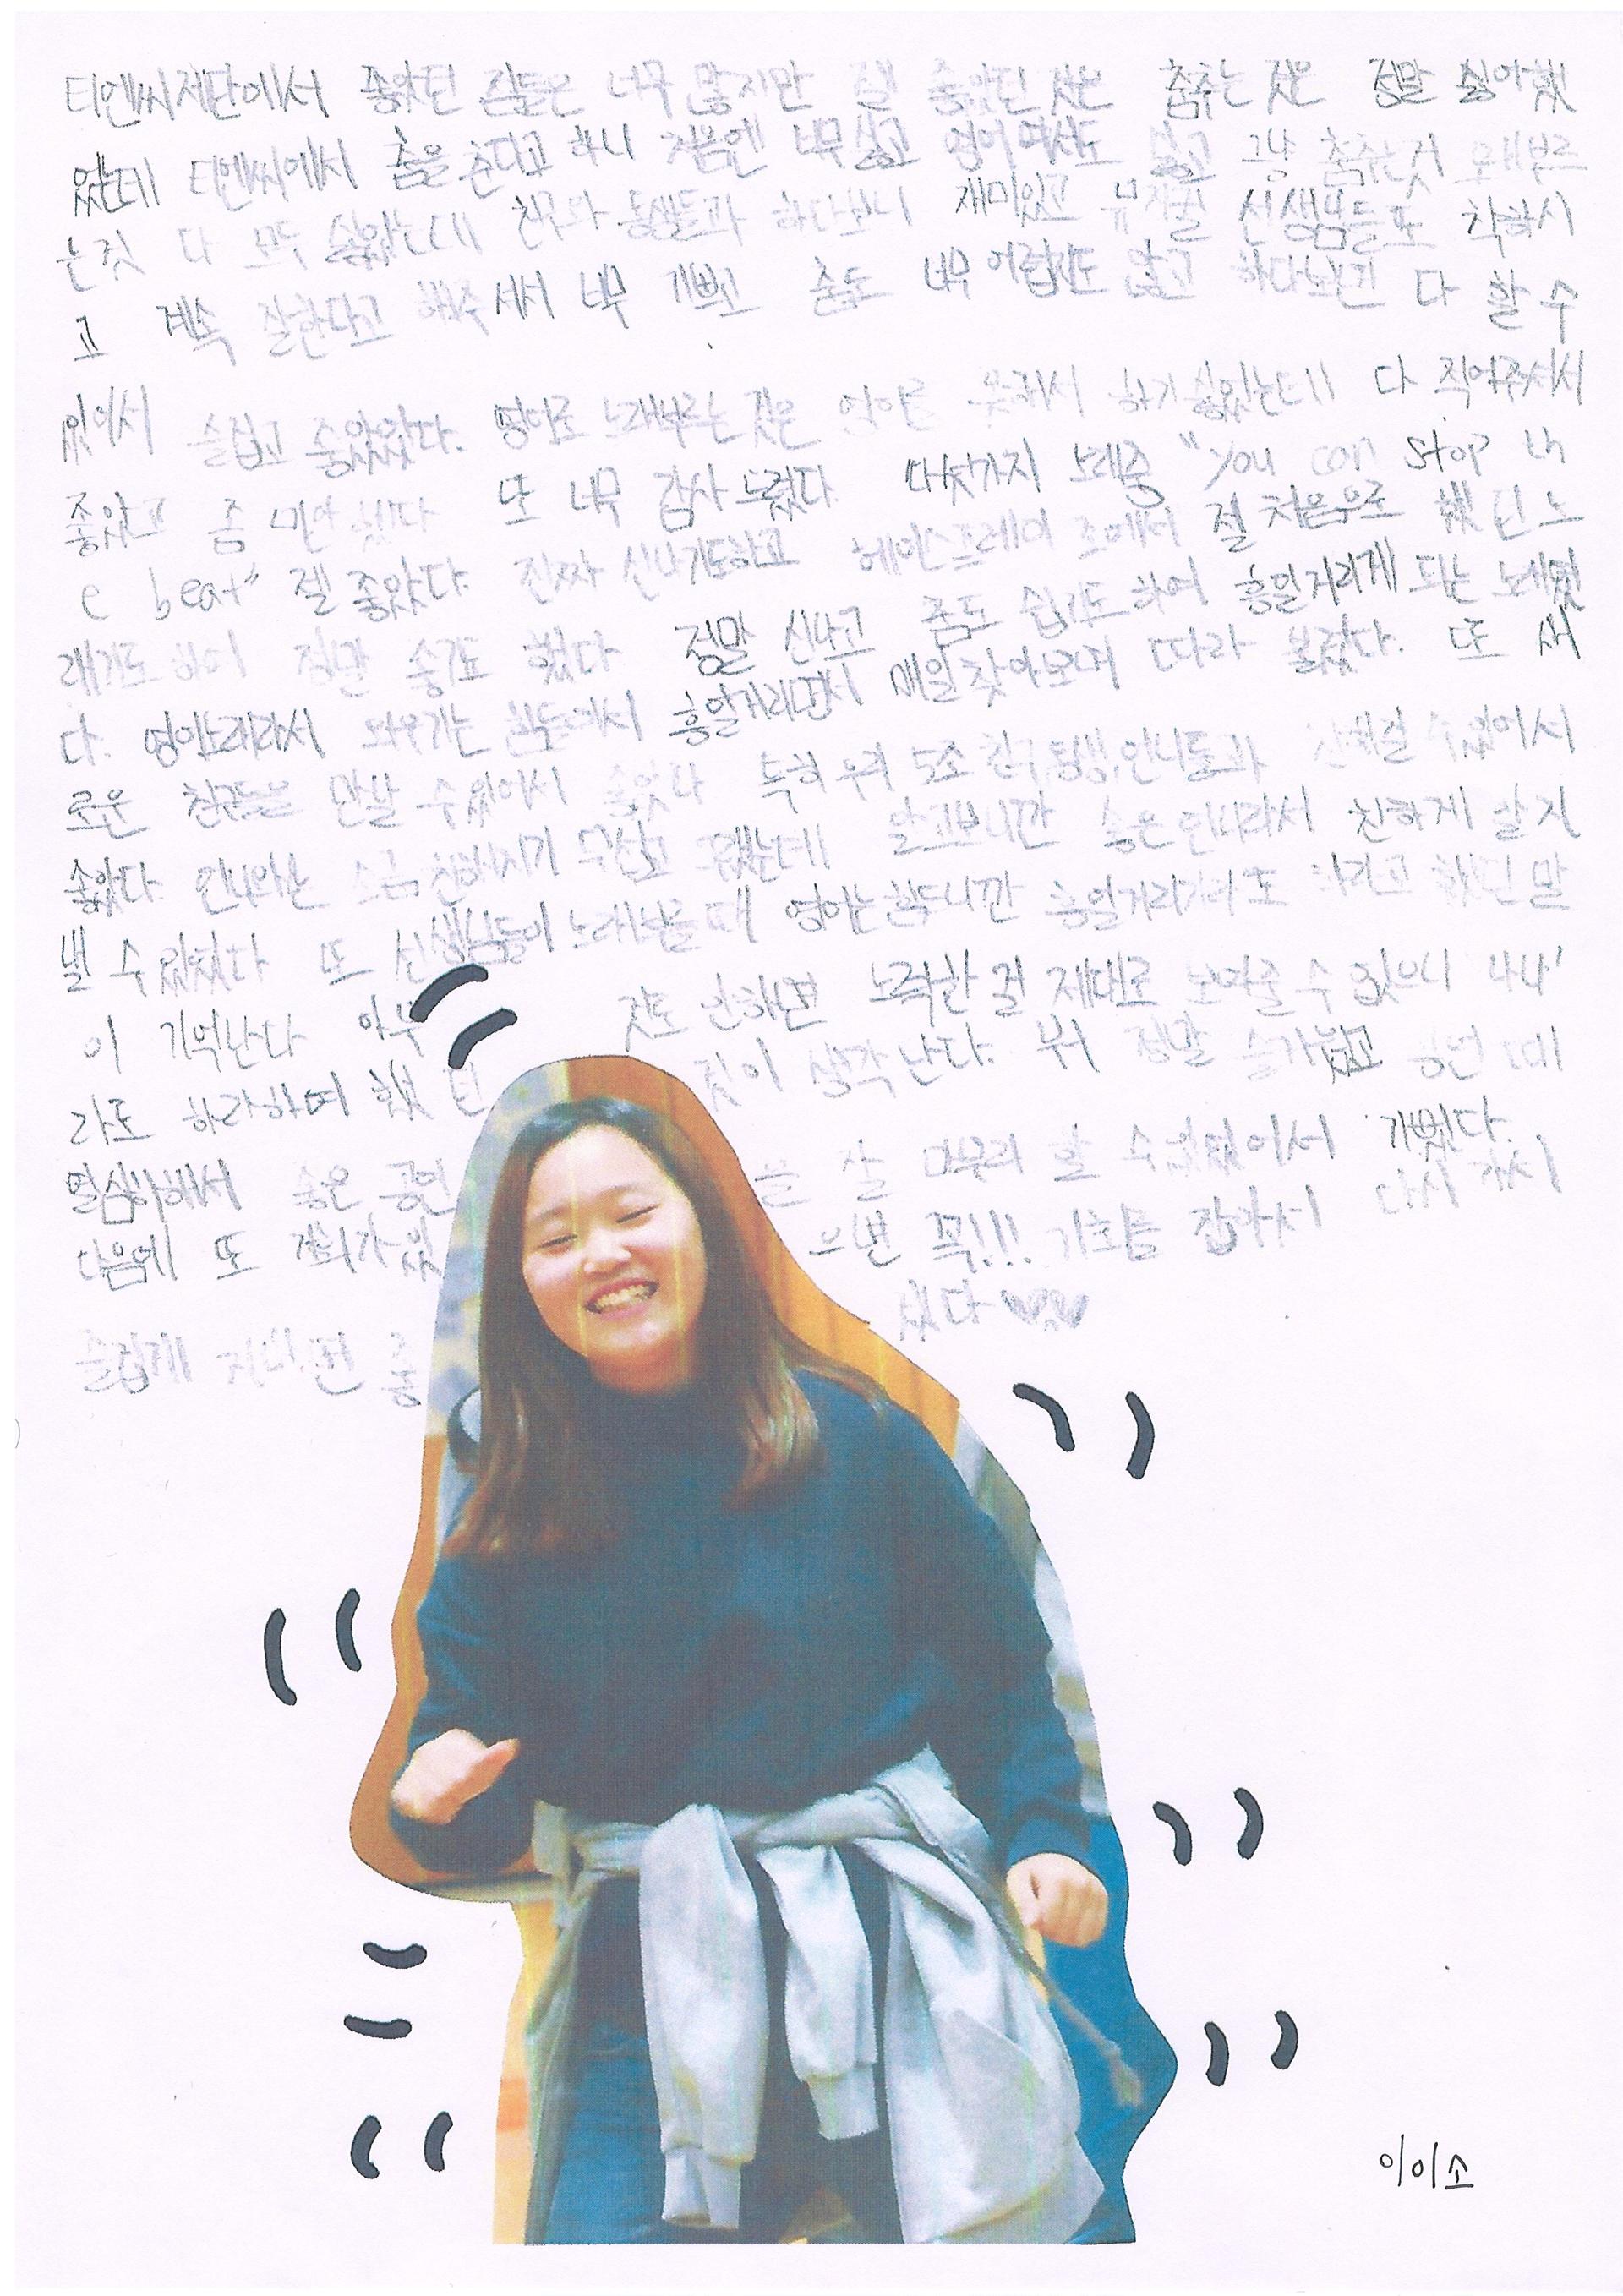 티엔씨재단에서 좋았던 점들은 너무 많지만 젤 좋았던 것은 춤추는 것은 정말 싫어했
었는데 티엔씨에서 춤을 춘다고 하니 처음엔 너무 싫고 영어 싫고 그냥 춤추는거
는것 다 모두 싫었는데 친구와 동생들과 하다보니 재미있고 뮤지컬 선생님들도 착하시
고 계속 잘한다고 해주셔서 너무 기쁘고 춤도 너무 어렵지도 않고 하다보면 다 할 수
있어서 즐겁고 좋았었다. 영어로 노래부르는 것은 영어를 못해서 하기 싫었는데 다 적어주셔서
좋았고 좀 미안했다 또 너무 감사 다섯가지 노래중 "you can stop th
e beat" 젤 좋았다. 진짜 신나기도하고 헤어스프레이 조에서 젤 처음으로 했던 노
래기도 하여 정말 좋기도 했다 정말 신나고 춤도 쉽기도 하여 흥얼거리게 되는 노래였
다. 영어노래라서 외우기는 힘들어서 흥얼거리면서 매일 찾아보며 따라 불렀다. 또 새
로운 친구들을 만날 수 있어서 좋았다 특히 우리 5조 친구, 동생, 언니들과 친해질 수 있어서
좋았다. 언니와는 조금 친해지기 무섭고 그랬는데 알고보니깐 좋은 언니라서 친하게 잘 지
낼 수 있었다 또 선생님들이 노래부를때 영어는 힘드니깐 흥얼거리기라도 하라고 했던 말
이 기억난다 아무 것도 안하면 노력한 걸 제대로 보여줄 수 없으니 '나나'
라도 하라하며 했던 것이 생각난다. 뭐 정말 즐거웠고 공연 때
열심히해서 좋은 공연 을 잘 마무리 할 수 있었어서 기뻤다.
다음에 또 기회가 있 으면 꼭!!! 기회를 잡아서 다시 가서
즐겁게 지내면 좋 겠다 ♥♥
이이소